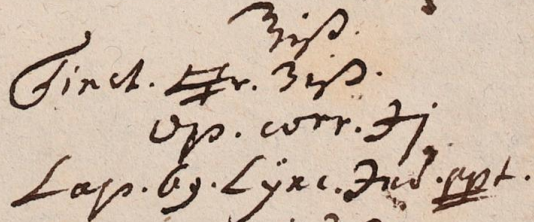 ʒiß.
Tinct. ♁r. ʒiß.
Op. corr. ℈j
Lap. 69. Lÿnc. Jud. ppt.